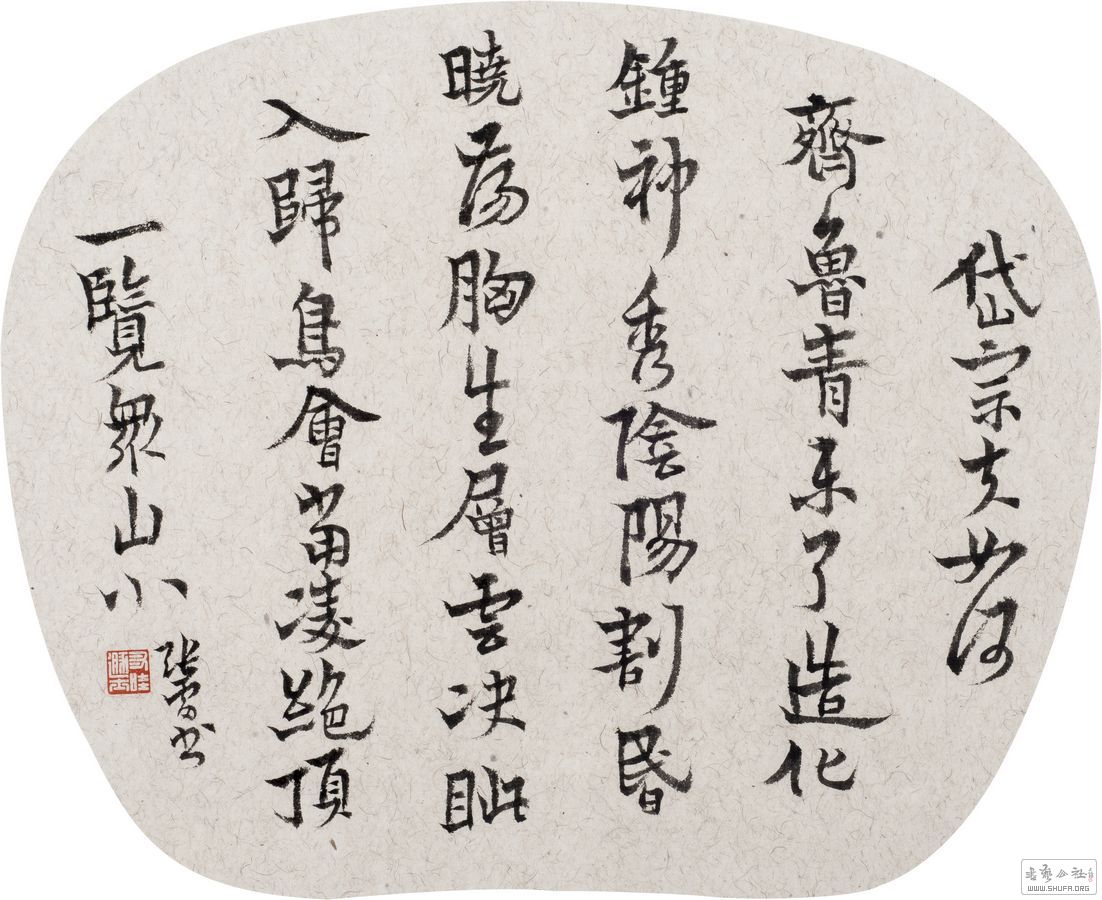 岱宗夫如何
齊魯青未了造化
鍾神秀陰陽割昏
曉蕩胸生層雲决眦
入歸鳥會當凌絶頂
一覽眾山小
張書
書藝公社
WWW.SHUFA.ORG